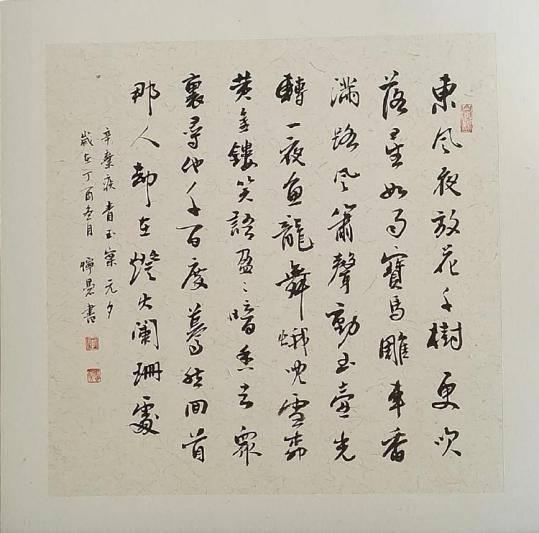 東風夜放花千樹更吹
落星如雨寶馬雕車香
滿路鳳簫聲動玉壺光
轉一夜魚龍舞蛾兒雪柳
黃金縷笑語盈〻暗香去眾
裏尋他千百度驀然回首
那人却在燈火闌珊處
辛棄疾青玉案元夕
歲在丁酉冬月 書